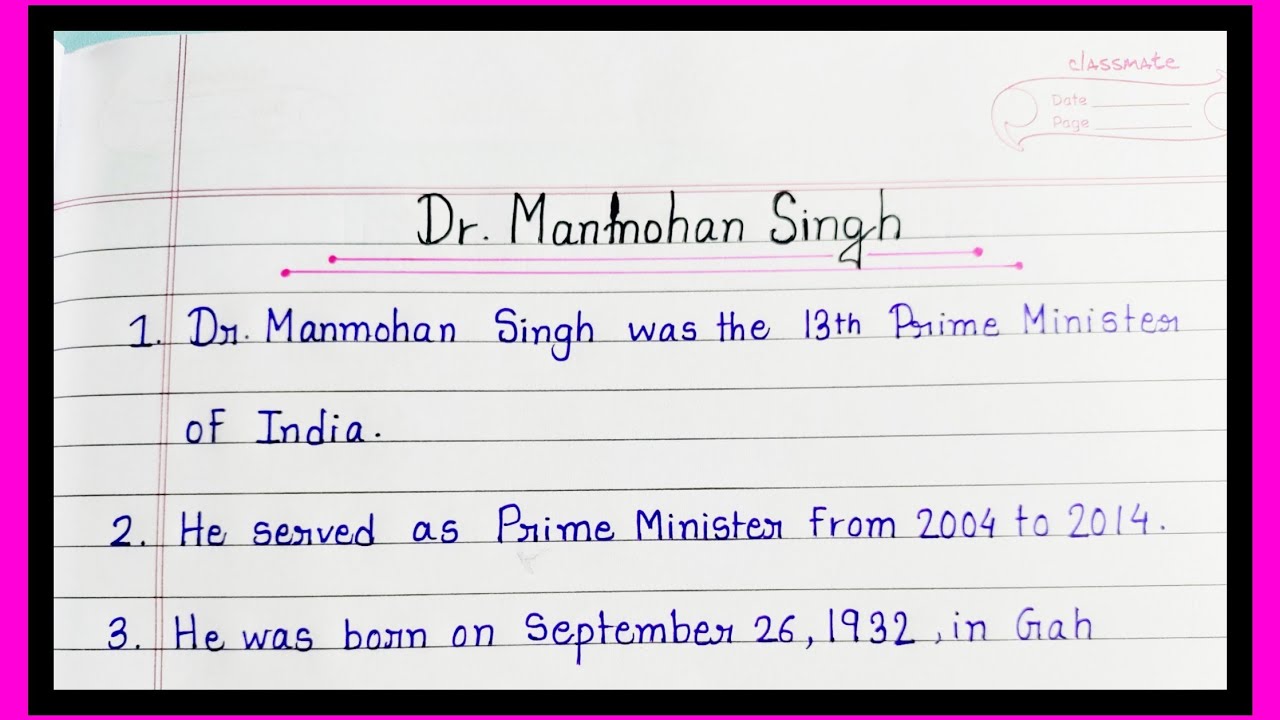 classmate
Date
Page
Dr. Manmohan Singh
1. Dr. Manmohan Singh was the 13th Prime Minister
of India.
2. He served as Prime Minister from 2004 to 2014.
3. He was born on September 26, 1932, in Gah